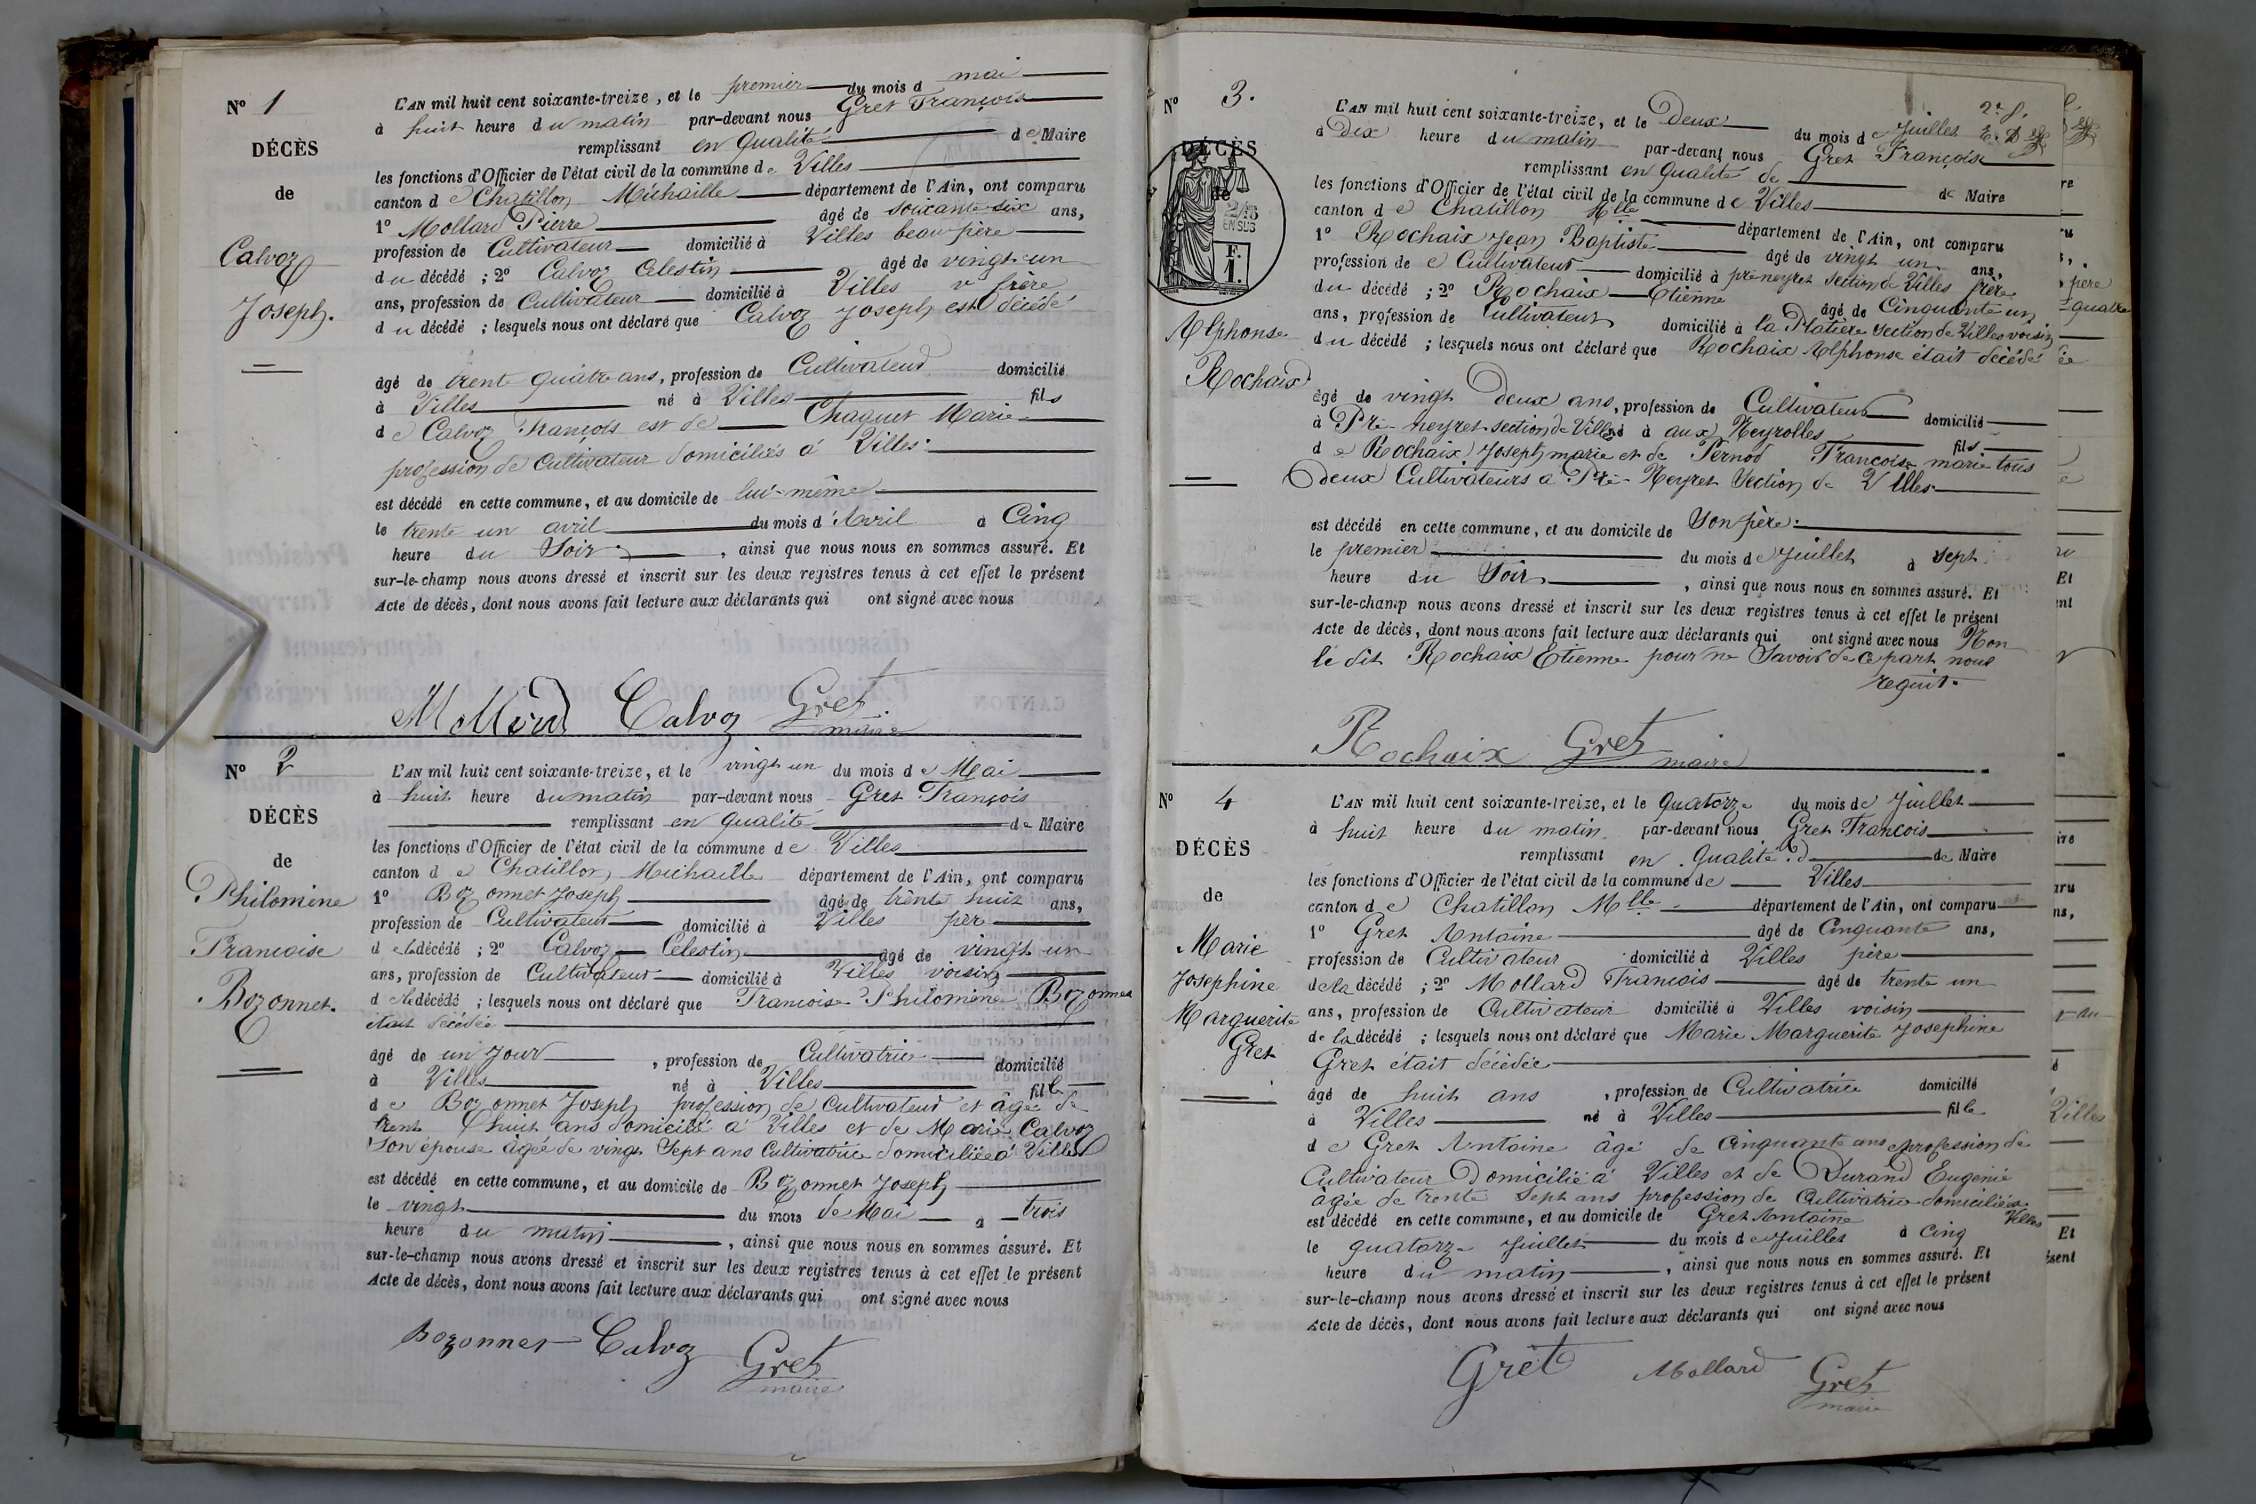 N° 1
DÉCÈS
de
Calvoz
Joseph.
L'AN mil huit cent soixante-treize, et le premier du mois d mai
à huit heure du matin par-devant nous Gret François
remplissant en qualité de Maire
les fonctions d'Officier de l'état civil de la commune de Villes
canton de Chatillon Michaille département de l'Ain, ont comparu
1° Mollard Pierre âgé de soixante six ans,
profession de Cultivateur domicilié à Villes beau père
du décédé ; 2° Calvoz Célestin âgé de vingt un
ans, profession de Cultivateur domicilié à Villes frère
du décédé ; lesquels nous ont déclaré que Calvoz Joseph est décédé
âgé de trente quatre ans, profession de Cultivateur domicilié
à Villes né à Villes fils
de Calvoz François est de Chaquet Marie
profession de cultivateur domiciliés à Villes.
est décédé en cette commune, et au domicile de lui-même
le trente un avril du mois d'Avril à Cinq
heure du Soir, ainsi que nous nous en sommes assuré. Et
sur-le-champ nous avons dressé et inscrit sur les deux registres tenus à cet effet le présent
Acte de décès, dont nous avons fait lecture aux déclarants qui ont signé avec nous
Mollard Calvoz Gret
maire
N° 2
DÉCÈS
de
Philomine
Francoise
Bozonnet.
L'AN mil huit cent soixante-treize, et le vingt un du mois de Mai
à huit heure du matin par-devant nous Gret François
remplissant en qualité de Maire
les fonctions d'Officier de l'état civil de la commune de Villes
canton de Chatillon Michaille département de l'Ain, ont comparu
1° Bozonnet Joseph âgé de trente huit ans,
profession de Cultivateur domicilié à Villes père
d décédé ; 2° Calvoz Celestin âgé de vingt un
ans, profession de Cultivateur domicilié à Villes voisin
d décédé ; lesquels nous ont déclaré que Francoise Philomine Bozonnet
était décédée
âgé de un jour, profession de Cultivatrice domicilié
à Villes né à Villes fille
de Bozonnet Joseph profession de Cultivateur et âgé de
trent huit ans domicilié à Villes et de Marie Calvoz
Son épouse âgée de vingt Sept ans Cultivatrice domiciliée à Villes
est décédé en cette commune, et au domicile de Bozonnet Joseph
le vingt du mois de Mai à trois
heure du matin, ainsi que nous nous en sommes assuré. Et
sur-le-champ nous avons dressé et inscrit sur les deux registres tenus à cet effet le présent
Acte de décès, dont nous avons fait lecture aux déclarants qui ont signé avec nous
Bozonnet Calvoz Gret
maire
N° 3.
DÉCÈS
de
2/10
EN SUS
F.
1.
Alphonse
Rochaix
L'AN mil huit cent soixante-treize, et le Deux du mois de Juillet
à Dix heure du matin par-devant nous Gret François
remplissant en qualité de de Maire
les fonctions d'Officier de l'état civil de la commune de Villes
canton de Chatillon Mlle département de l'Ain, ont comparu
1° Rochaix Jean Baptiste âgé de vingt un ans,
profession de Cultivateur domicilié à préneyret section de Villes frère
du décédé ; 2° Rochaix Etienne âgé de Cinquante un
ans, profession de Cultivateur domicilié à la Platiere section de Villes voisin
du décédé ; lesquels nous ont déclaré que Rochaix Alphonse était décédé
âgé de vingt Deux ans, profession de Cultivateur domicilié
à Pré-neyret section de Villes né à aux Neyrolles fils
de Rochaix Joseph marie et de Pernod Francoise marie tous
deux Cultivateurs à Pré-Neyret Section de Villes
est décédé en cette commune, et au domicile de Son père.
le premier du mois de Juillet à sept
heure du Soir, ainsi que nous nous en sommes assuré. Et
sur-le-champ nous avons dressé et inscrit sur les deux registres tenus à cet effet le présent
Acte de décès, dont nous avons fait lecture aux déclarants qui ont signé avec nous Non
le dit Rochaix Etienne pour ne Savoir de ce part nous
requit.
Rochaix Gret
maire
N° 4
DÉCÈS
de
Marie
Josephine
Marguerite
Gret
L'AN mil huit cent soixante-treize, et le quatorze du mois de Juillet
à huit heure du matin par-devant nous Gret François
remplissant en qualité d de Maire
les fonctions d'Officier de l'état civil de la commune de Villes
canton de Chatillon Mlle département de l'Ain, ont comparu
1° Gret Antoine âgé de Cinquante ans,
profession de Cultivateur domicilié à Villes père
de la décédé ; 2° Mollard Francois âgé de trente un
ans, profession de Cultivateur domicilié à Villes voisin
de la décédé ; lesquels nous ont déclaré que Marie Marguerite Josephine
Gret était décédée
âgé de huit ans, profession de Cultivatrice domicilié
à Villes né à Villes fille
de Gret Antoine âgé de Cinquante ans profession de
Cultivateur Domicilié à Villes et de Durand Eugenie
âgée de trente Sept ans profession de Cultivatrice domiciliée à
Villes
est décédé en cette commune, et au domicile de Gret Antoine
le quatorze Juillet du mois de Juillet à Cinq
heure du matin, ainsi que nous nous en sommes assuré. Et
sur-le-champ nous avons dressé et inscrit sur les deux registres tenus à cet effet le présent
Acte de décès, dont nous avons fait lecture aux déclarants qui ont signé avec nous
Gret Mollard Gret
maire